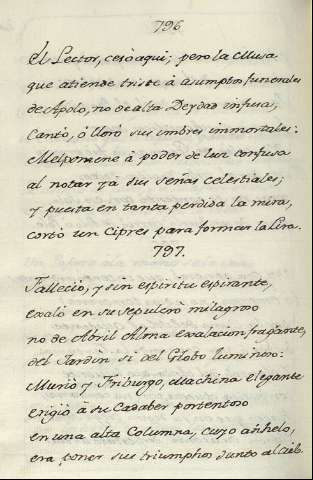 796
El Lector, cesò aqui; pero la Musa
que atiende triste à asumptos funerales
de Apolo, no de alta Deydad infusa,
Cantò, ó llorò sus timbres immortales:
Melpomene à poder de luz confusa
al notar yà sus señas celestiales;
y puesta en tanta perdida la mira,
cortò un Cipres para formar la Lira.
797.
Falleciò, y sin espiritu espirante,
exalò en su sepulcro milagroso
no de Abril Alma exalacion fragante,
del Jardin si del Globo luminoso:
Muriò y Friburgo, Machina elegante
erigiò à su Cadaber portentoso
en una alta Columna, cuyo anhelo,
era poner sus triumphos junto al cielo.